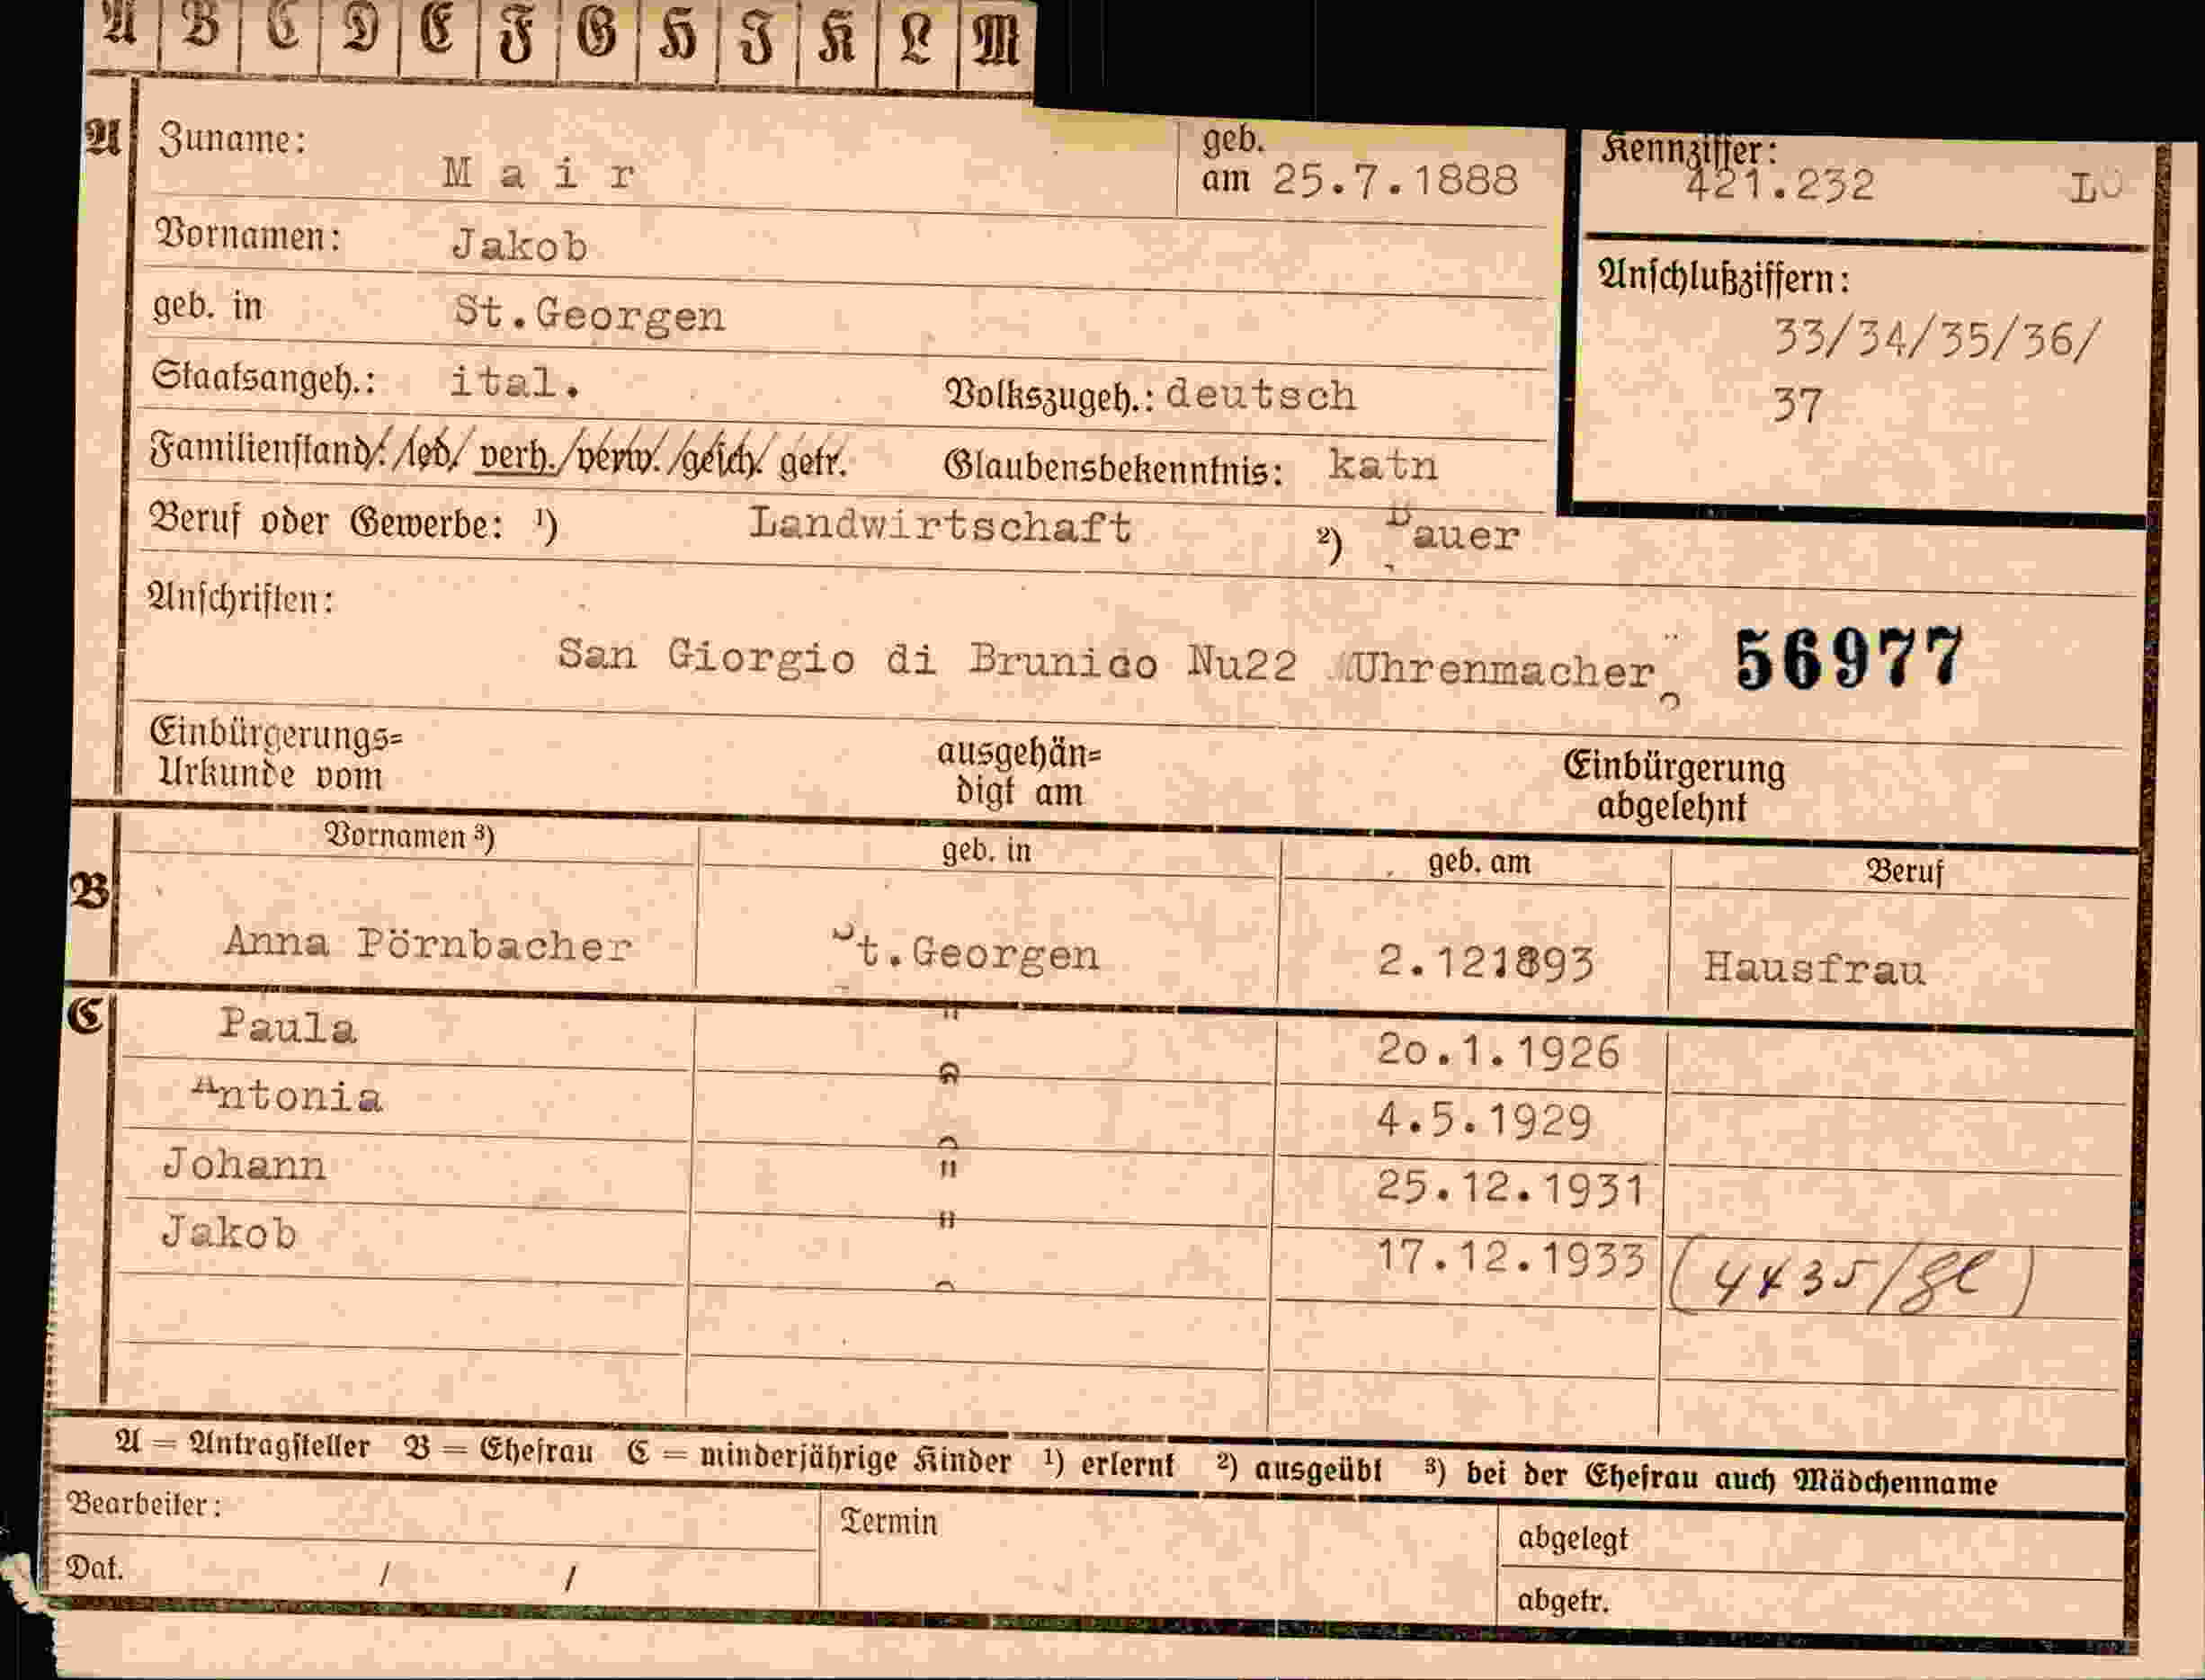 A B C D E F G H I K L M
A Zuname: Mair geb. am 25.7.1888
Kennziffer: 421.232
Vornamen: Jakob
geb. in St.Georgen
Anschlußziffern:
33/34/35/36/
37
Staatsangeh.: ital. Volkszugeh.: deutsch
Familienstand: led. verh. verw. gesch. getr. Glaubensbekenntnis: kath
Beruf oder Gewerbe: ¹) Landwirtschaft ²) Bauer
Anschriften:
San Giorgio di Brunico Nu22 Uhrenmacher 56977
Einbürgerungs=
Urkunde vom
ausgehän=
digt am
Einbürgerung
abgelehnt
Vornamen ³) geb. in geb. am Beruf
B Anna Pörnbacher St.Georgen 2.121893 Hausfrau
C Paula " 2o.1.1926
Antonia " 4.5.1929
Johann " 25.12.1931
Jakob " 17.12.1933 (4435/
A = Antragsteller B = Ehefrau C = minderjährige Kinder ¹) erlernt ²) ausgeübt ³) bei der Ehefrau auch Mädchenname
Bearbeiter:
Dat. / /
Termin
abgelegt
abgetr.